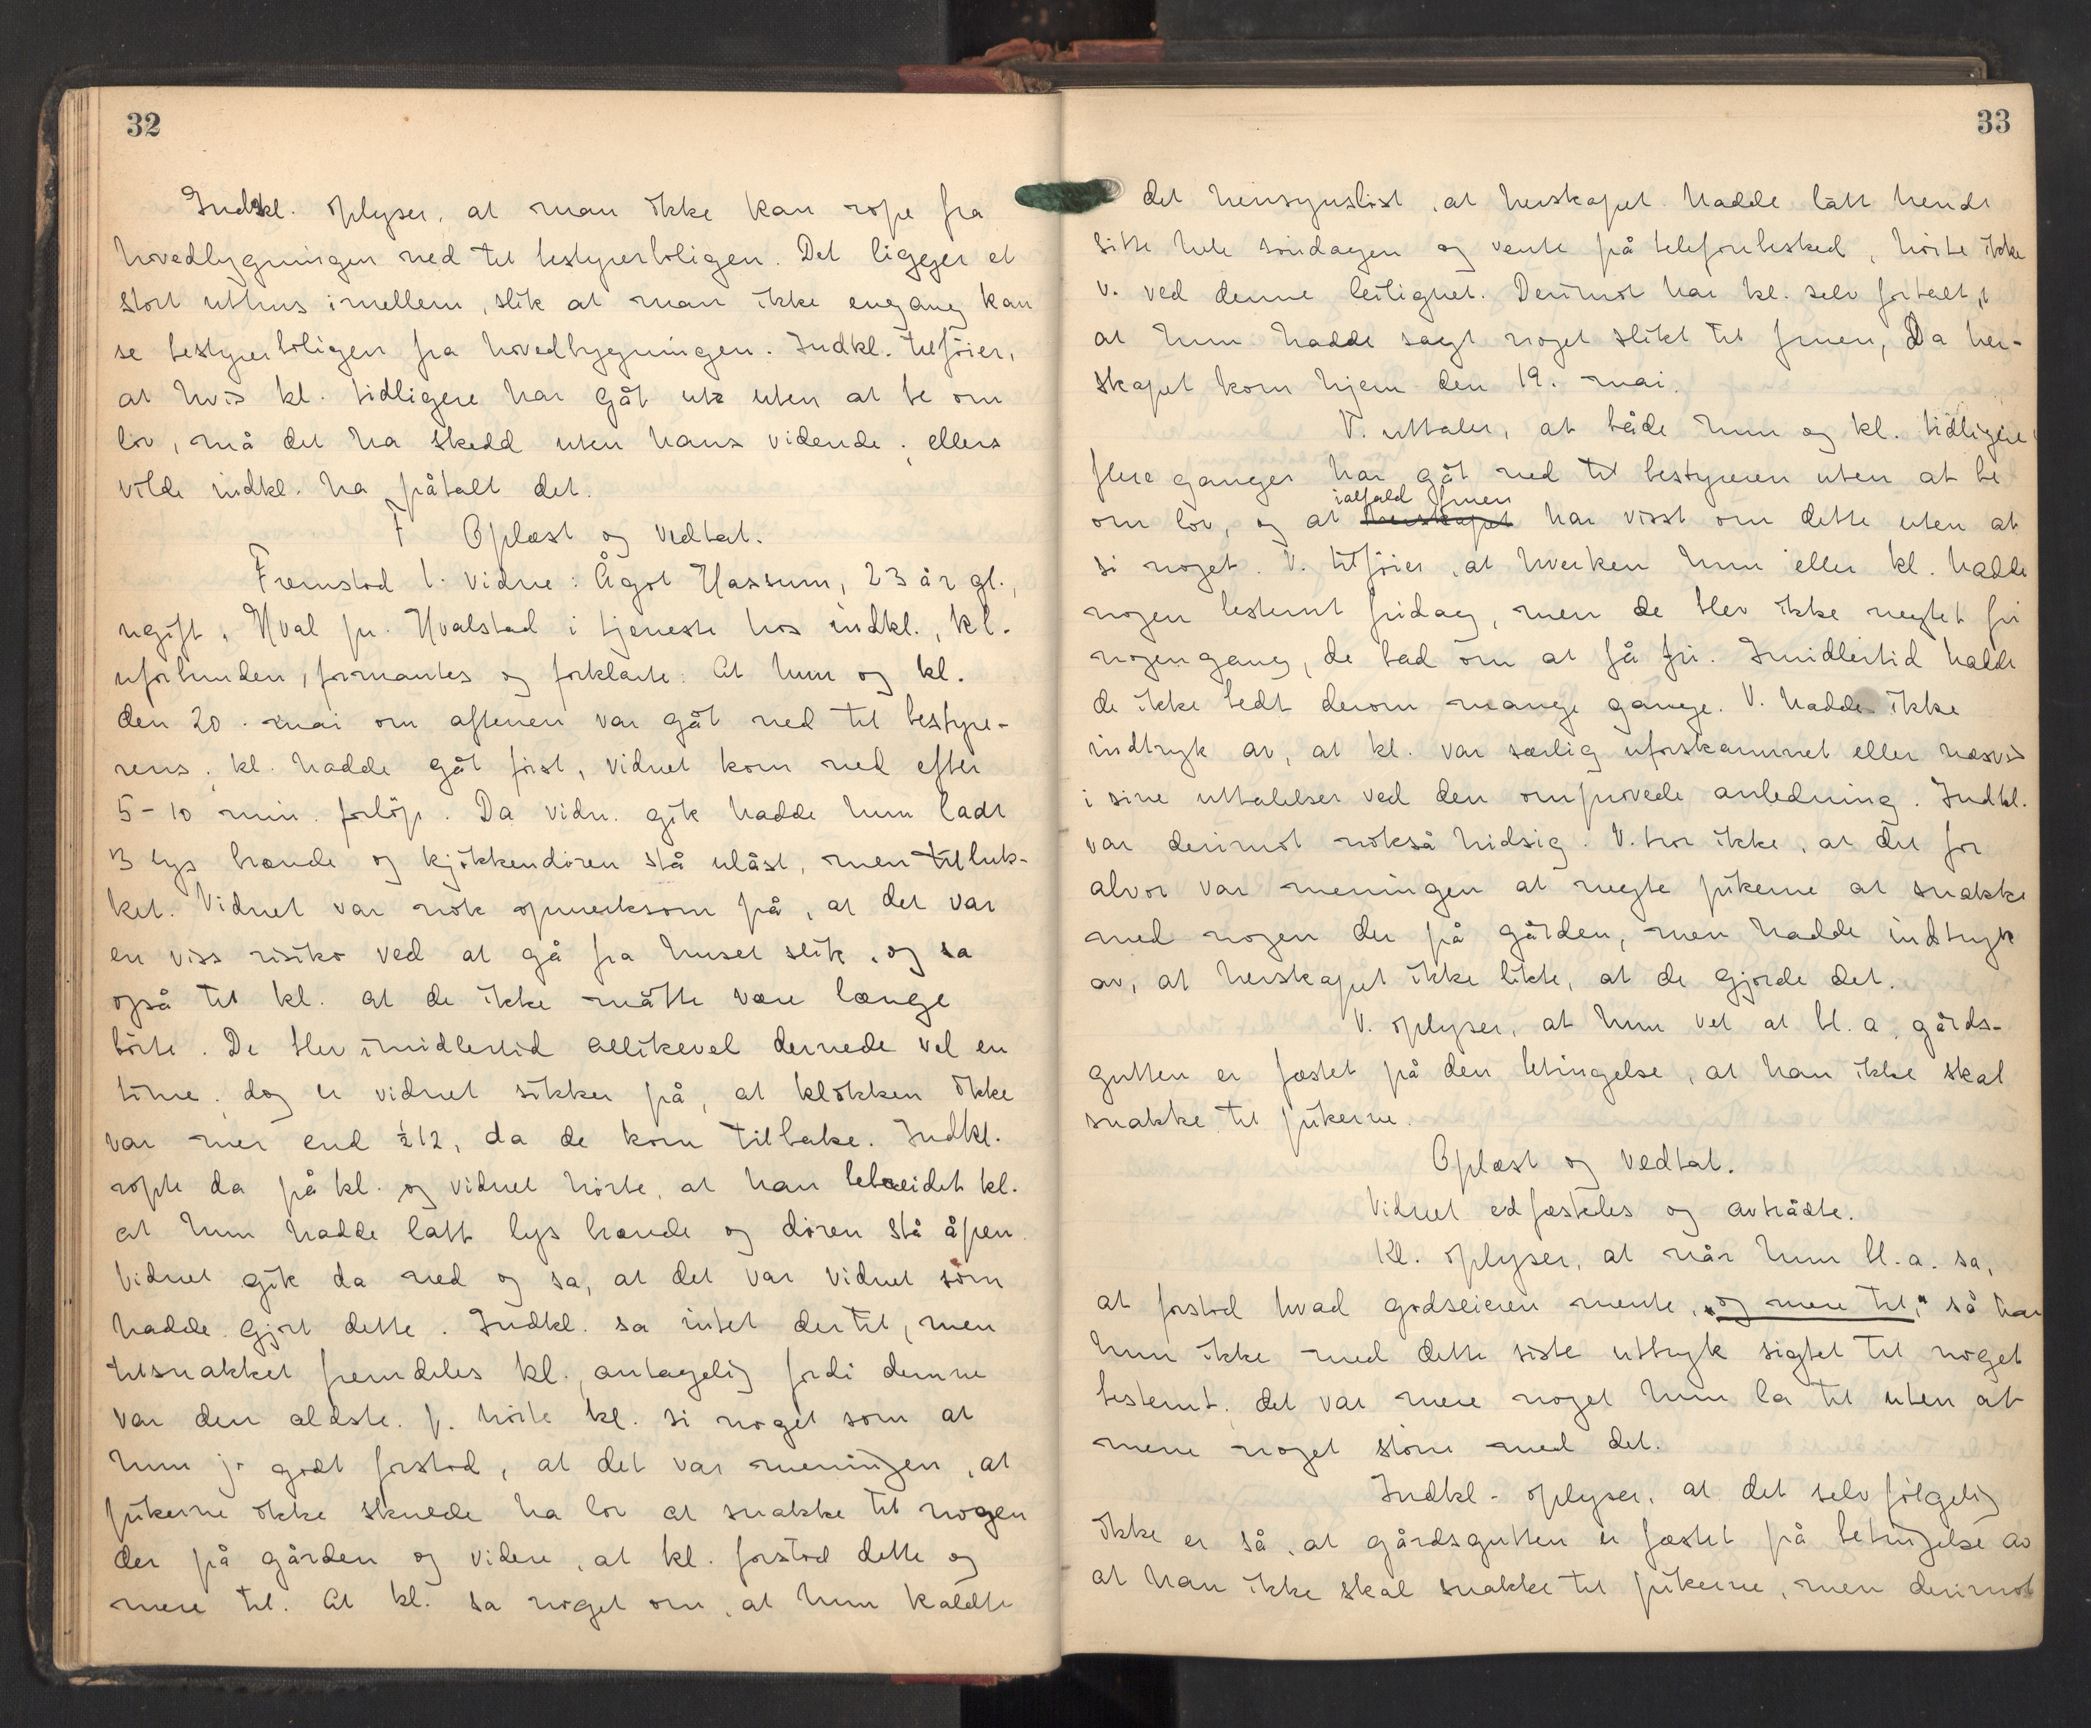 32
Indkl. oplyser, at man ikke kan rope fra
hovedbygningen ned til bestyrerboligen. Det ligger et
stort uthus imellem, slik at man ikke engang kan
se bestyrerboligen fra hovedbygningen. Indkl. tilföier,
at hvis kl. tidligere har gåt ut uten at be om
lov, må det ha skedd uten hans vidende; ellers
vilde indkl. ha påtalt det.
Oplæst og vedtat.
Fremstod 1. vidne: Ågot Hassum, 23 år gl.,
ugift, Hval pr. Hvalstad i tjeneste hos indkl., kl.
uforbunden, formantes og forklarte: At hun og kl.
den 20. mai om aftenen var gåt ned til bestyre-
rens; kl. hadde gåt först, vidnet kom ned efter
5-10 min. forlöp. Da vidn. gik hadde hun ladt
3 lys brænde og kjökkendören stå ulåst, men tilluk-
ket. Vidnet var nok opmerksom på, at det var
en viss risiko ved at gå fra huset slik, og sa
også til kl. at de ikke måtte være længe
borte. De blev imidlertid allikevel dernede vel en
time; dog er vidnet sikker på, at klokken ikke
var mer end ½12, da de kom tilbake. Indkl.
ropte da på kl. og vidnet hörte, at han bebreidet kl.
at hun hadde latt lys brænde og dören stå åpen.
Vidnet gik da ned og sa, at det var vidnet som
hadde gjort dette. Indkl. sa intet dertil, men
tilsnakket fremdeles kl., antagelig fordi denne
var den ældste. V. hörte kl. si noget som at
hun jo godt forstod, at det var meningen, at
pikerne ikke skulde ha lov at snakke til nogen
der på gården og videre, at kl. forstod dette og
mere til. At kl. sa noget om, at hun kaldte
33
det hensynslöst, at herskapet hadde latt hende
sitte hele söndagen og vente på telefonbesked, hörte ikke
v. ved denne leilighet. Derimot har kl. selv fortalt,
at hun hadde sagt noget slikt til fruen, da her-
skapet kom hjem den 19. mai.
V. uttaler, at både hun og kl. tidligere
flere ganger har gåt ned til bestyreren uten at be
ialfald fruen
om lov, og at herskapet har visst om dette uten at
si noget. V. tilföier, at hverken hun eller kl. hadde
nogen bestemt fridag, men de blev ikke negtet fri
nogengang, de bad om at få fri. Imidlertid hadde
de ikke bedt derom mange gange. V. hadde ikke
indtryk av, at kl. var særlig uforskammet eller næsvis
i sine uttalelser ved den omprovede anledning. Indkl.
var derimot nokså hidsig. V. tror ikke, at det for
alvor var meningen at negte pikerne at snakke
med nogen der på gården, men hadde indtryk
av, at herskapet ikke likte, at de gjorde det.
V. oplyser, at hun vet at bl. a. gårds-
gutten er fæstet på den betingelse, at han ikke skal
snakke til pikerne.
Oplæst og vedtat.
Vidnet edfæstedes og avtrådte.
Kl. oplyser, at når hun bl. a. sa,
at forstod hvad godseieren mente, "og mere til," så har
hun ikke med dette siste uttryk sigtet til noget
bestemt; det var mere noget hun la til uten at
mene noget större med det.
Indkl. oplyser, at det selvfölgelig
ikke er så, at gårdsgutten er fæstet på betingelse av
at han ikke skal snakke til pikerne, men derimot